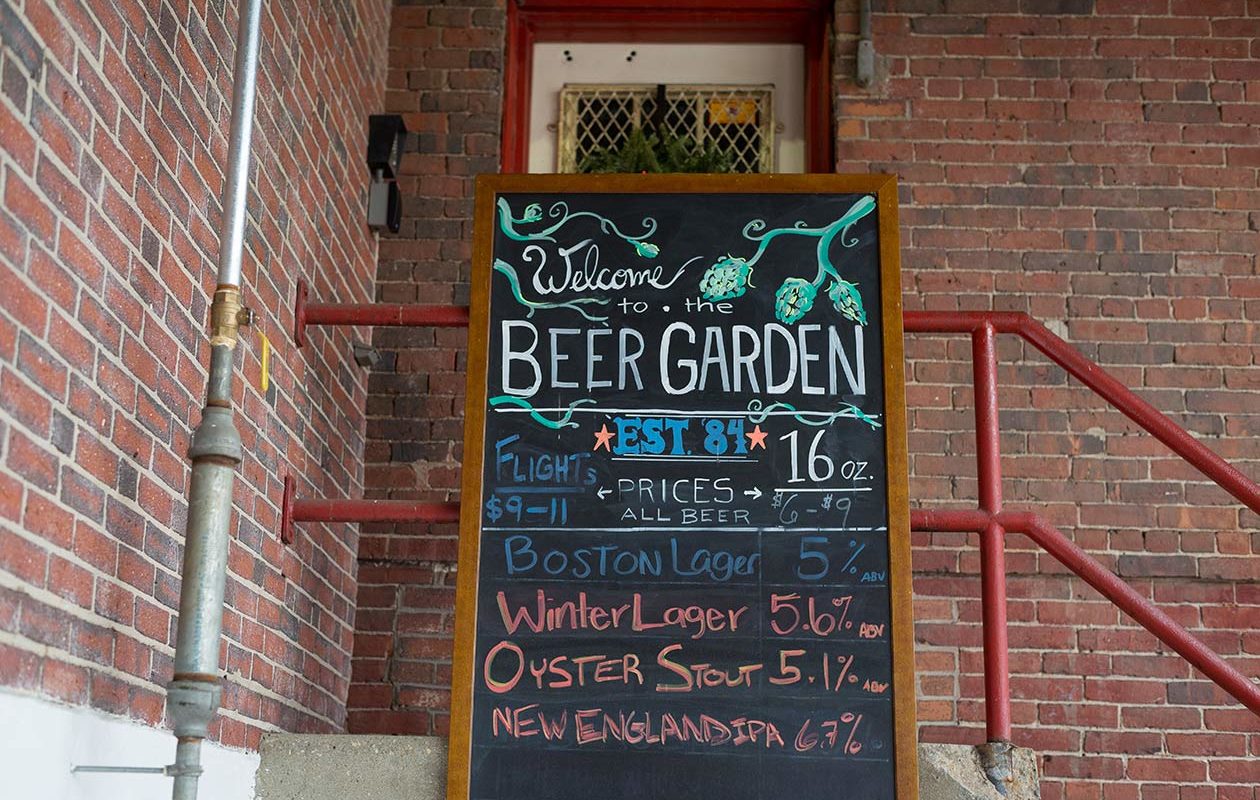 Welcome
to • the
BEER GARDEN
★ EST. '84 ★
FLIGHTS
$9-11
← PRICES →
ALL BEER
16 oz.
$6 - $9
BOSTON Lager 5% ABV
WINTER Lager 5.6% ABV
OYSTER STOUT 5.1% ABV
NEW ENGLAND IPA